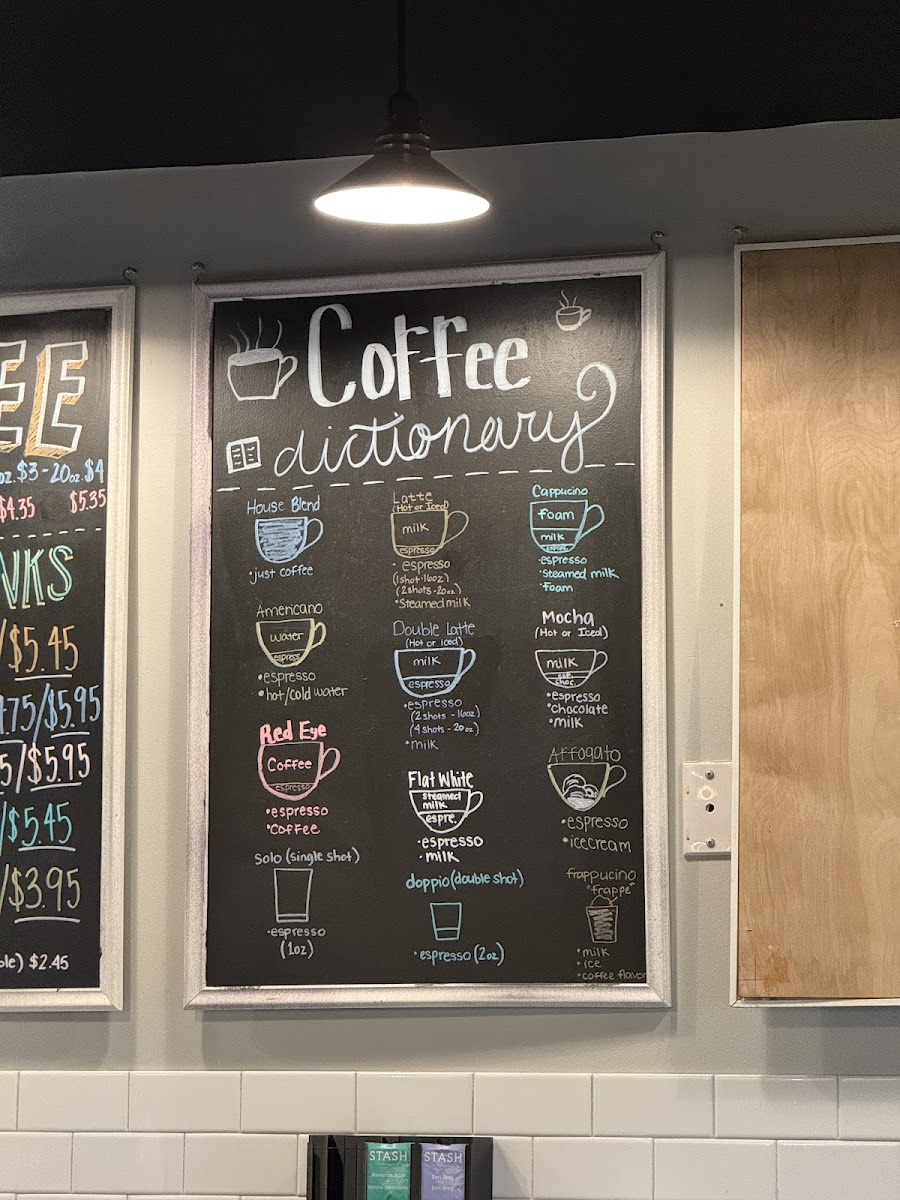 EE
oz. $3 - 20oz. $4
$4.35 $5.35
NKS
/$5.45
4.75/$5.95
5/$5.95
/$5.45
/$3.95
ble) $2.45
Coffee
dictionary
House Blend
• just coffee
Americano
water
espress
• espresso
• hot/cold water
Red Eye
Coffee
espresso
• espresso
• Coffee
Solo (single shot)
• espresso
(1oz)
Latte
(Hot or Iced)
milk
espresso
• espresso
(1 shot - 16oz)
(2 shots - 20oz)
• Steamed milk
Double Latte
(Hot or Iced)
milk
espresso
• espresso
(2 shots - 16oz)
(4 shots - 20oz)
• milk
Flat White
steamed
milk
espre.
• espresso
• milk
doppio (double shot)
• espresso (2oz)
Cappucino
foam
milk
• espresso
• Steamed milk
• foam
Mocha
(Hot or Iced)
milk
esp.
choc.
• espresso
• chocolate
• milk
Affogato
• espresso
• icecream
frappucino
"frappe"
• milk
• ice
• coffee flavor
STASH
STASH
Earl Grey